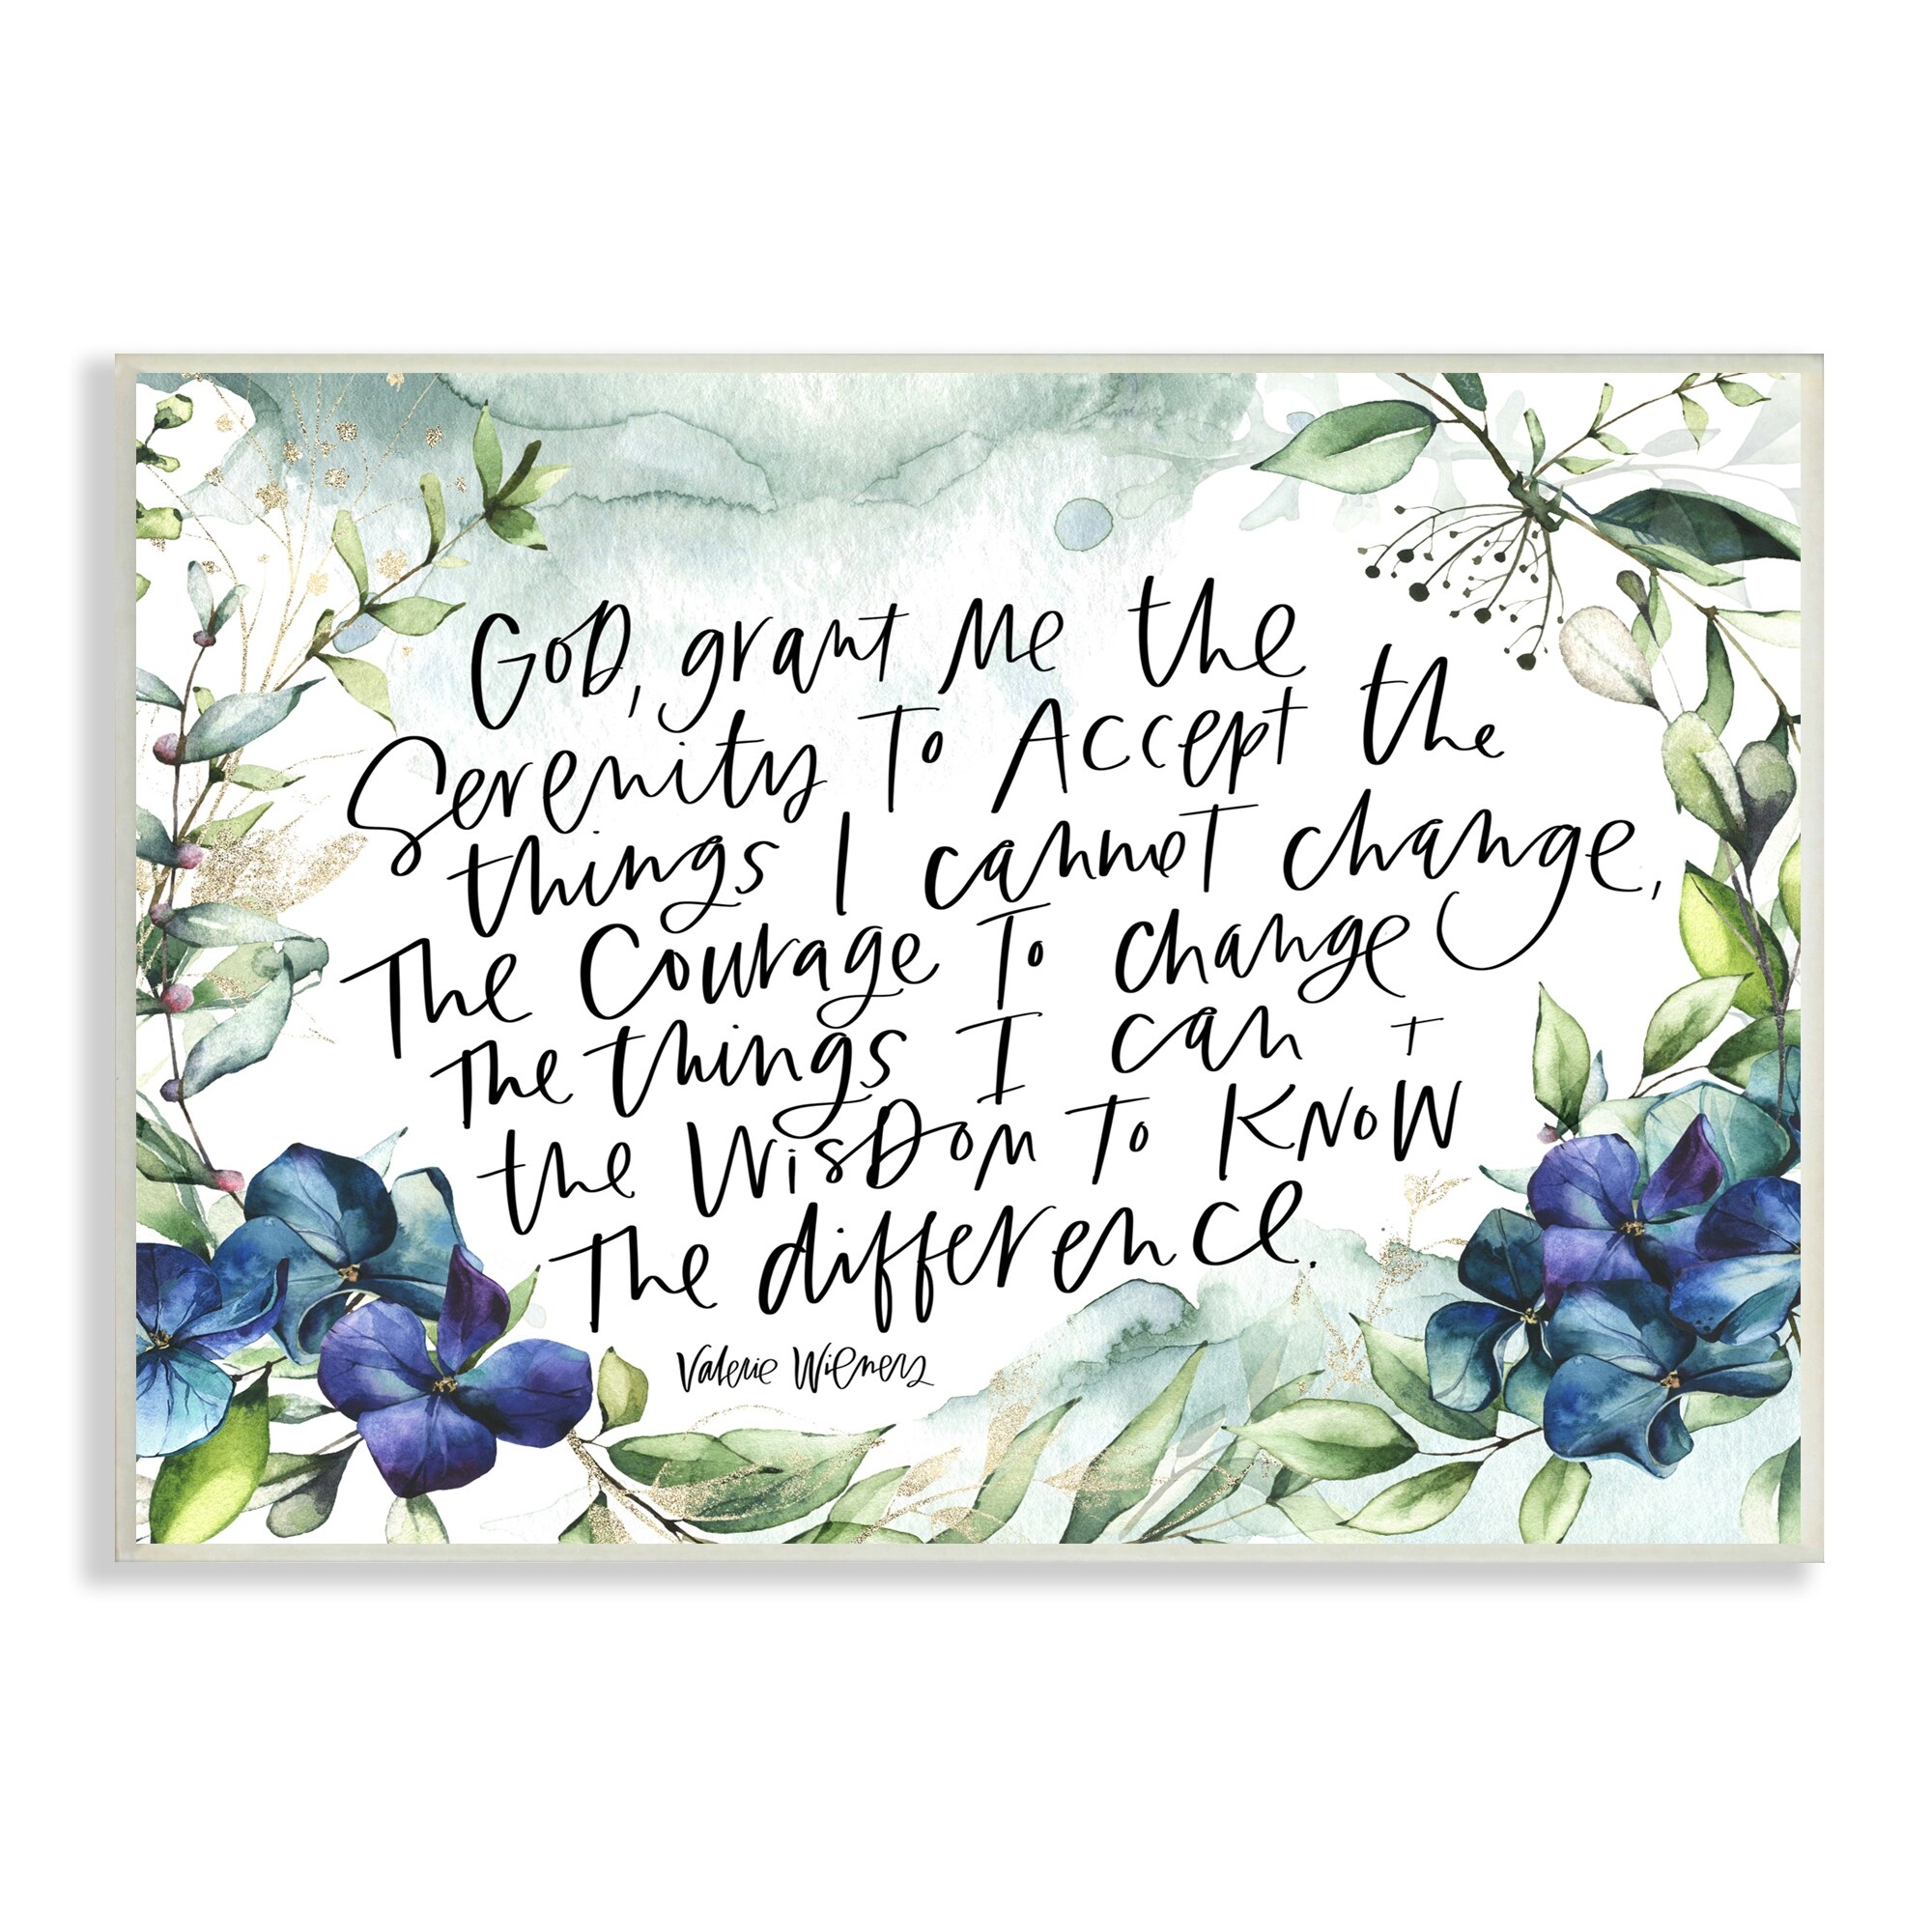 God, grant me the
Serenity To Accept the
things I cannot change,
The Courage To change
The things I can +
the Wisdom To Know
The difference.
Valerie Wieners